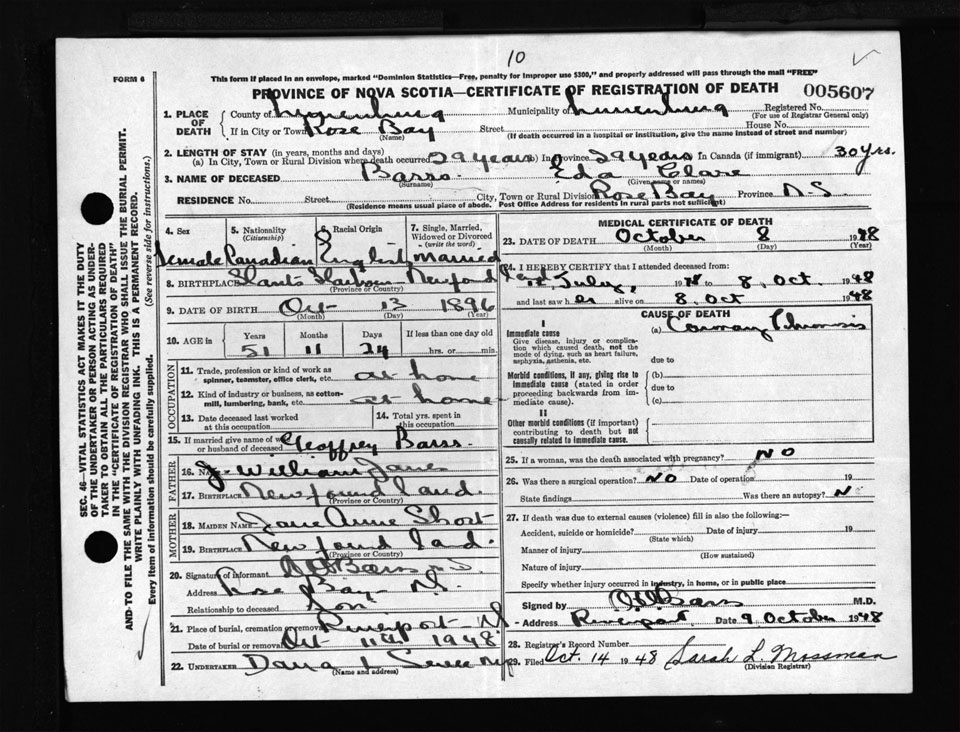 10
FORM 6
This form if placed in an envelope, marked "Dominion Statistics—Free, penalty for improper use $300," and properly addressed will pass through the mail "FREE"
PROVINCE OF NOVA SCOTIA—CERTIFICATE OF REGISTRATION OF DEATH 005607
1. PLACE OF DEATH County of Lunenburg Municipality of Lunenburg Registered No. (For use of Registrar General only)
If in City or Town Rose Bay (Name) Street House No. (If death occurred in a hospital or institution, give the name instead of street and number)
2. LENGTH OF STAY (in years, months and days)
(a) In City, Town or Rural Division where death occurred 29 years (b) In Province 29 years In Canada (if immigrant) 30 yrs.
3. NAME OF DECEASED Barss (Surname) Eda Clare (Given name or names)
RESIDENCE No. Street City, Town or Rural Division Rose Bay Province N.S.
(Residence means usual place of abode. Post Office Address for residents in rural parts not sufficient)
4. Sex Female
5. Nationality (Citizenship) Canadian
6. Racial Origin English
7. Single, Married, Widowed or Divorced (write the word) Married
8. BIRTHPLACE Harbour Newfoundland (Province or Country)
9. DATE OF BIRTH Oct (Month) 13 (Day) 1896 (Year)
10. AGE in Years 51 Months 11 Days 24 If less than one day old hrs. or min.
OCCUPATION
11. Trade, profession or kind of work as spinner, teamster, office clerk, etc. at home
12. Kind of industry or business, as cotton-mill, lumbering, bank, etc. at home
13. Date deceased last worked at this occupation
14. Total yrs. spent in this occupation
15. If married give name of wife or husband of deceased Geoffrey Barss.
FATHER
16. Name J. William
17. Birthplace Newfoundland. (Province or Country)
MOTHER
18. MAIDEN NAME Jane Anne Short
19. BIRTHPLACE Newfoundland. (Province or Country)
20. Signature of informant Barss
Address Rose Bay N.S.
Relationship to deceased Son
21. Place of burial, cremation or removal Riverport N.S.
Date of burial or removal Oct 11th 1948
22. UNDERTAKER Dana L (Name and address)
MEDICAL CERTIFICATE OF DEATH
23. DATE OF DEATH October (Month) 8 (Day) 1948 (Year)
24. I HEREBY CERTIFY that I attended deceased from:
July, 19 to 8, Oct. 1948
and last saw her alive on 8 Oct 1948
CAUSE OF DEATH
I
Immediate cause
Give disease, injury or complication which caused death, not the mode of dying, such as heart failure, asphyxia, asthenia, etc.
(a) Coronary Thrombosis
due to
Morbid conditions, if any, giving rise to immediate cause (stated in order proceeding backwards from immediate cause).
(b)
due to
(c)
II
Other morbid conditions (if important) contributing to death but not causally related to immediate cause.
25. If a woman, was the death associated with pregnancy? NO
26. Was there a surgical operation? NO Date of operation 19
State findings Was there an autopsy? N
27. If death was due to external causes (violence) fill in also the following:—
Accident, suicide or homicide? (State which) Date of injury 19
Manner of injury (How sustained)
Nature of injury
Specify whether injury occurred in industry, in home, or in public place
Signed by Barss M.D.
Address Riverport Date 9 October 1948
28. Registrar's Record Number
29. Filed Oct. 14 1948 Sarah L. Mossman (Division Registrar)
SEC. 46—VITAL STATISTICS ACT MAKES IT THE DUTY
OF THE UNDERTAKER OR PERSON ACTING AS UNDER-
TAKER TO OBTAIN ALL THE PARTICULARS REQUIRED
IN THE "CERTIFICATE OF REGISTRATION OF DEATH"
AND TO FILE THE SAME WITH THE DIVISION REGISTRAR WHO SHALL ISSUE THE BURIAL PERMIT.
WRITE PLAINLY WITH UNFADING INK. THIS IS A PERMANENT RECORD.
Every item of information should be carefully supplied. (See reverse side for instructions.)